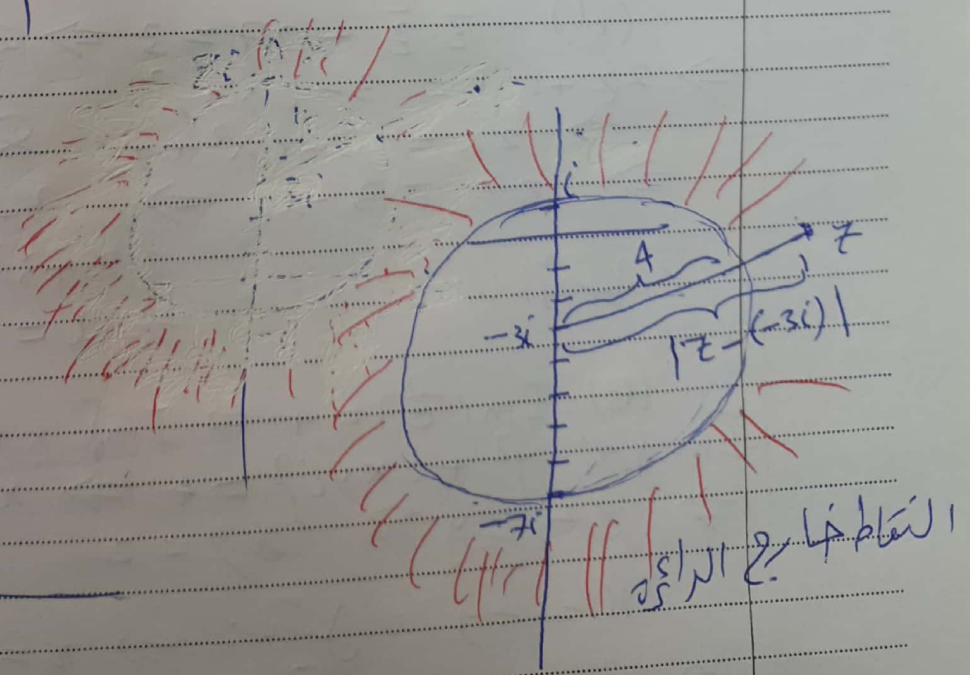 i
z
4
-3i
|z-(-3i)|
-7i
النقاط خارج الدائرة